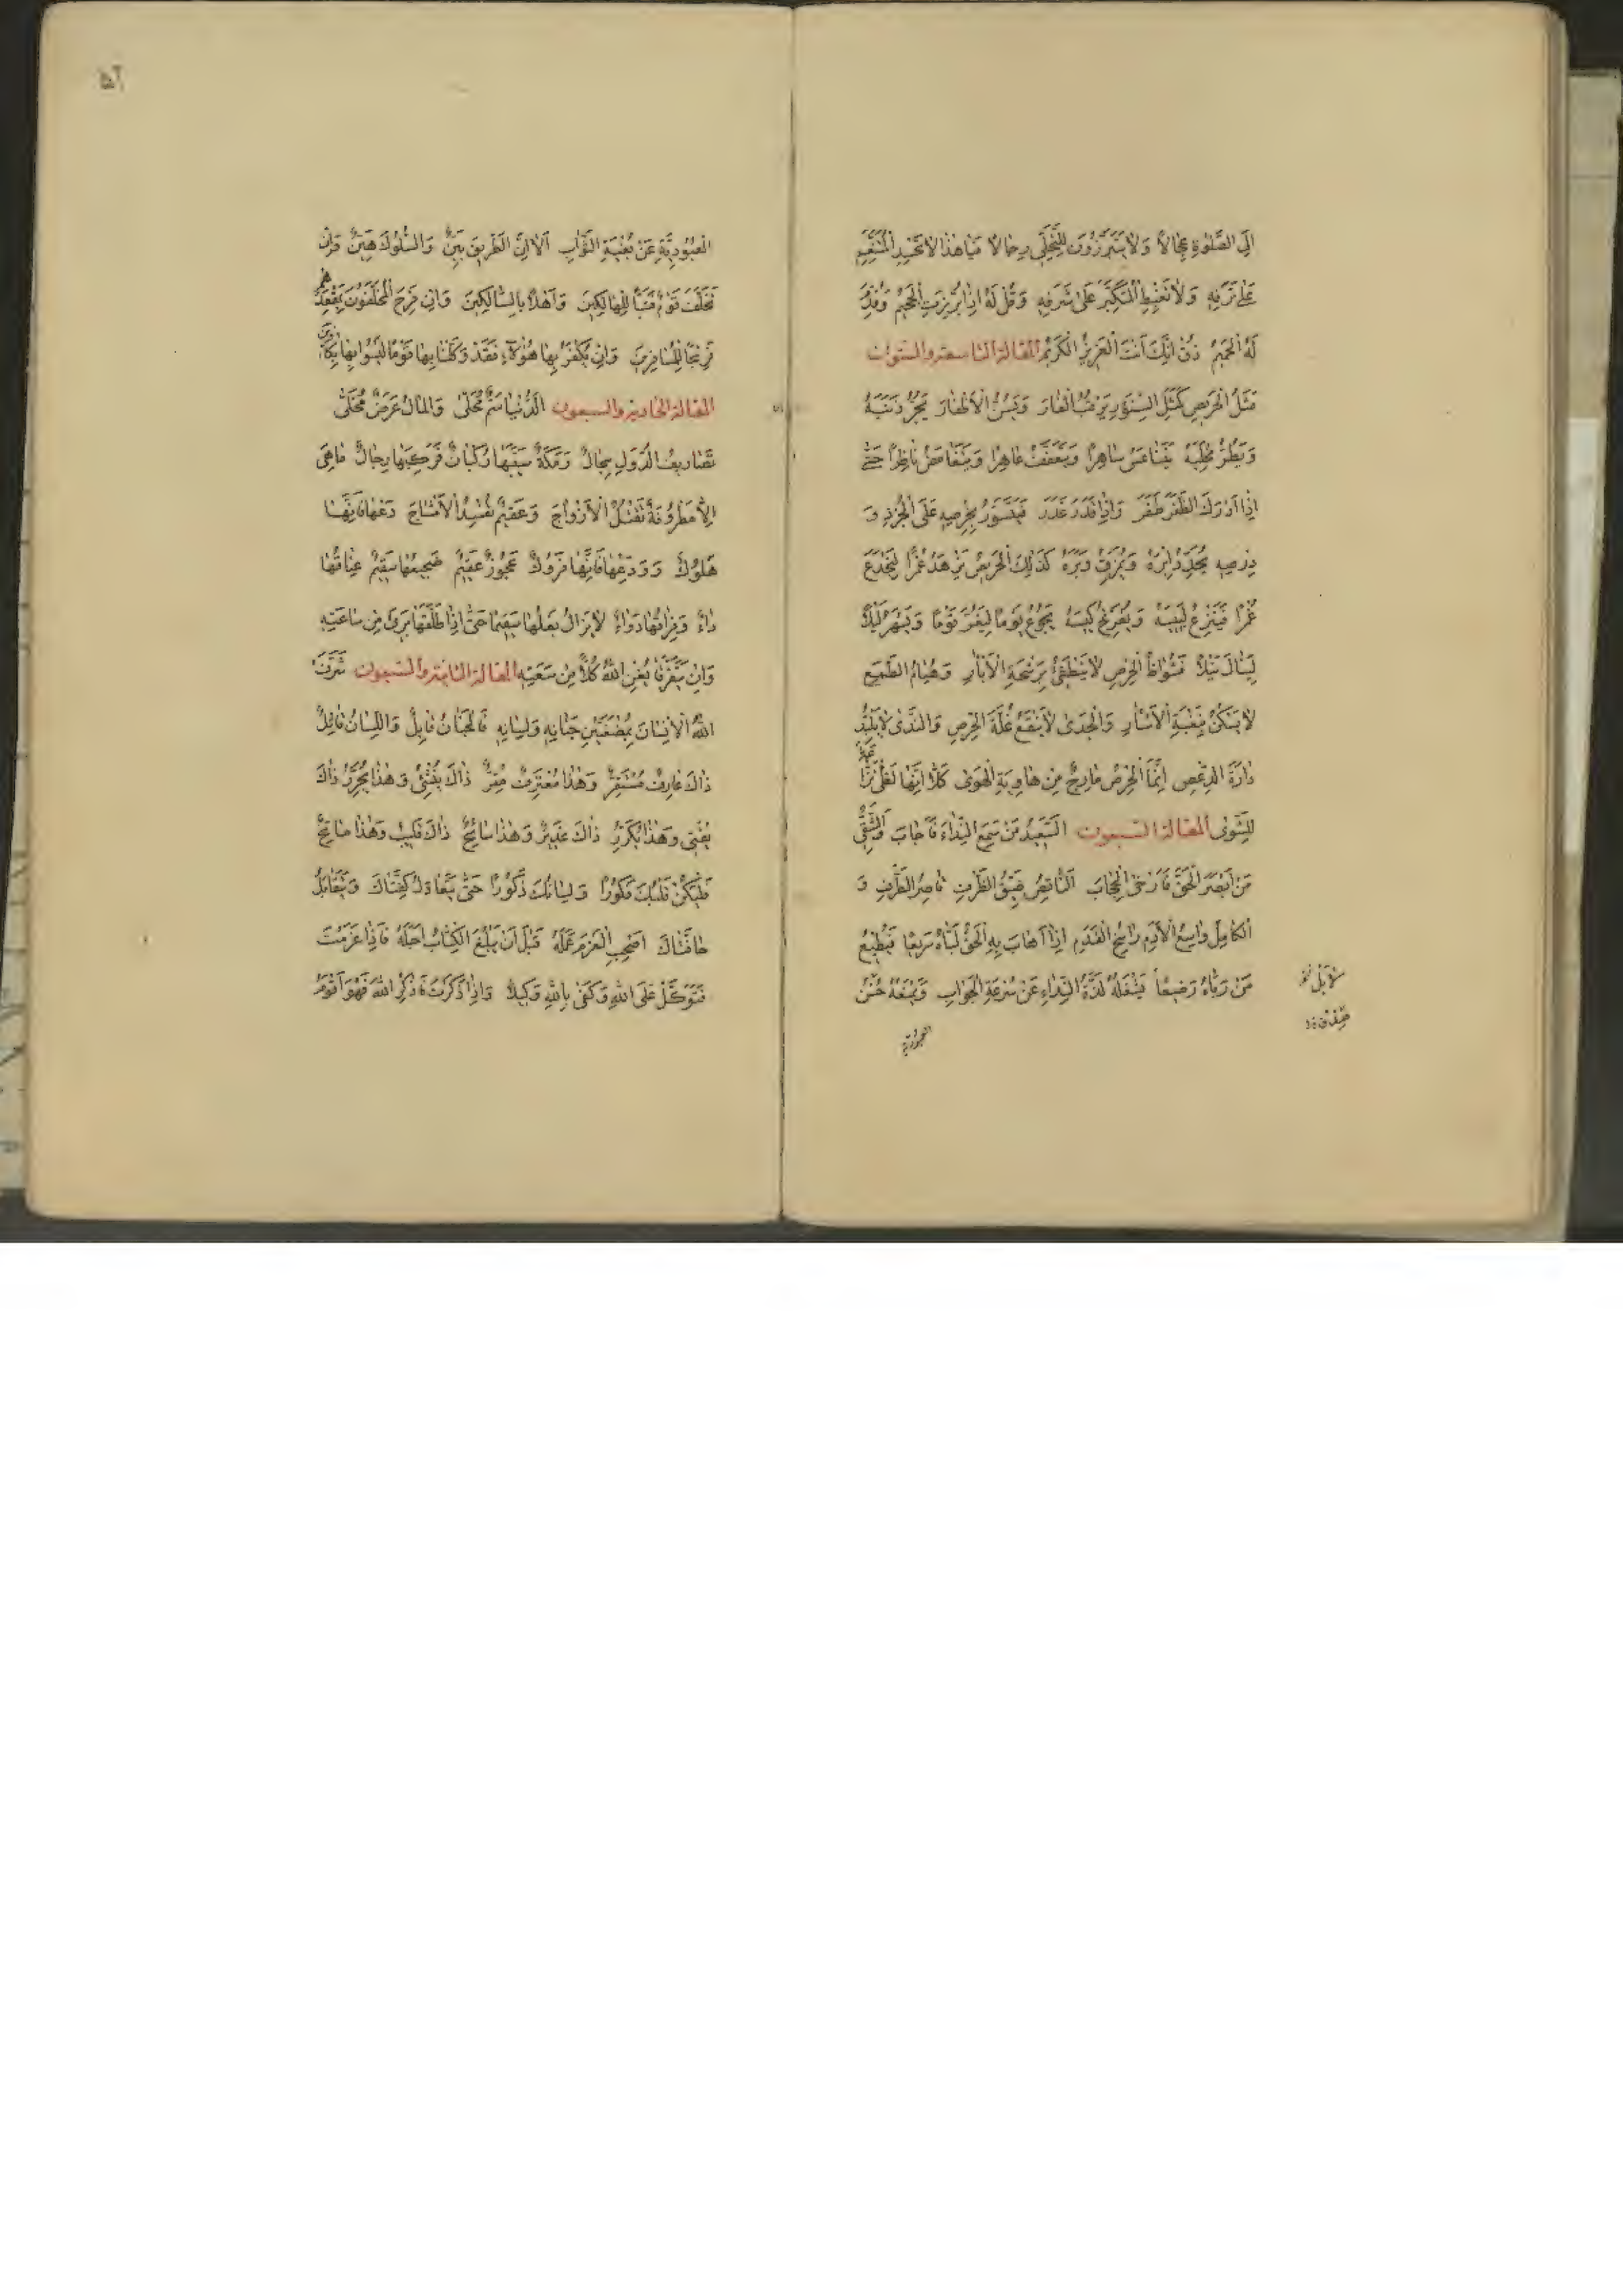 اِلَى الصَّلوٰةِ عِجَالاً وَلَا يَتَبَرَّزُونَ لِلتَّجَلِّي رِجَالاً فَيَا هٰذَا لَا تَحْسُدِ الْمُتَنَعِّمَ
عَلٰى تَرَفِهِ وَلَا تَغْبِطِ الْمُتَكَبِّرَ عَلٰى شَرَفِهِ وَقُلْ لَهُ اِذَا بُرِّزَتِ الْجَحِيمُ وَقُدِّمَ
لَهُ الْحَمِيمُ ذُقْ اِنَّكَ اَنْتَ الْعَزِيزُ الْكَرِيمُ المقالة التاسعة والستون
مَثَلُ الْحَرِيصِ كَمَثَلِ السِّنَّوْرِ يَرْقُبُ الْفَارَ وَيَسُنُّ الْاَظْفَارَ يَجُرُّ ذَنَبَهُ
وَيَطُرُّ مِخْلَبَهُ يَتَنَاعَسُ سَاهِرًا وَيَتَعَفَّفُ عَاهِرًا وَيَتَغَامَضُ نَاظِرًا حَتّٰى
اِذَا اَدْرَكَ الظَّفَرَ طَفَرَ وَاِذَا قَدَرَ غَدَرَ فَيَتَسَوَّرُ بِحِرْصِهِ عَلَى الْجُرَذِ وَ
دِرْصِهِ وَيُمَزِّقُ وَبَرَهُ كَذٰلِكَ الْحَرِيصُ يَزْهَدُ عُمْرًا لِيَخْدَعَ
غُمْرًا فَيَنْزِعُ لُبَّهُ وَيُفَرِّغُ كِيسَهُ يَجُوعُ يَوْمًا لِيَغُرَّ قَوْمًا وَيَسْهَرُ لَيْلاً
لِيَنَالَ نَيْلاً فَشُوَاظُ الْحِرْصِ لَا يَنْطَفِئُ بِرَشْحَةِ الْاٰبَارِ وَهُيَامُ الطَّمَعِ
لَا يَسْكُنُ بِنُغْبَةِ الْاَسْاٰرِ وَالْجَدٰى لَا يَنْقَعُ غُلَّةَ الْحِرْصِ وَالنَّدٰى لَا يُلَبِّدُ
دَارَةَ الدِّعْصِ اِنَّمَا الْحِرْصُ مَارِجٌ مِنْ هَاوِيَةِ الْهَوٰى كَلَّا اِنَّهَا لَظٰى نَزَّاعَةً
لِلشَّوٰى المقالة السبعون اَلسَّعِيدُ مَنْ سَمِعَ النِّدَاءَ فَاَجَابَ وَالشَّقِيُّ
مَنْ اَبْصَرَ الْحَقَّ فَاَرْخَى الْحِجَابَ اَلنَّاقِصُ ضَيِّقُ الظَّرْفِ قَاصِرُ الطَّرْفِ وَ
الْكَامِلُ وَاسِعُ الْاَدَمِ رَاسِخُ الْقَدَمِ اِذَا اَهَابَ بِهِ الْحَقُّ لَبَّاهُ سَرِيعًا فَيُطِيعُ
مَنْ رَبَّاهُ رَضِيعًا يَشْغَلُهُ لَذَّةُ النِّدَاءِ عَنْ سُرْعَةِ الْجَوَابِ وَيَمْنَعُهُ حُسْنُ
العبودية
الْعُبُودِيَّةِ عَنْ بُغْيَةِ الثَّوَابِ اَلَا اِنَّ الطَّرِيقَ بَيِّنٌ وَالسُّلُوكَ هَيِّنٌ وَاِنْ
تَخَلَّفَ قَوْمٌ فَتَبًّا لِلْهَالِكِينَ وَاَهْلاً بِالسَّالِكِينَ وَاِنْ فَرِحَ الْمُخَلَّفُونَ بِمَقْعَدِهِمْ
فَرِيحًا لِلْمُسَافِرِينَ وَاِنْ يَكْفُرْ بِهَا هٰؤُلَاءِ فَقَدْ وَكَّلْنَا بِهَا قَوْمًا لَيْسُوا بِهَا بِكَافِرِينَ
المقالة الحادية والسبعون اَلدُّنْيَا سَمٌّ مُحَلًّى وَالْمَالُ عَرَضٌ مُخَلًّى
تَصَارِيفُ الدُّوَلِ سِجَالٌ سَيَّبَهَا رُكْبَانٌ فَرَكِبَهَا رِجَالٌ مَا هِيَ
اِلَّا مَطْرُوفَةٌ تَقْتُلُ الْاَزْوَاجَ وَعَقِيمٌ تُفْسِدُ الْاَمْشَاجَ دَعْهَا فَاِنَّهَا
هَلُوكٌ وَوَدِّعْهَا فَاِنَّهَا فَرُوكٌ عَجُوزٌ عَقِيمٌ ضَجِيعُهَا سَقِيمٌ عِنَاقُهَا
دَاءٌ وَفِرَاقُهَا دَوَاءٌ لَا يَزَالُ بَعْلُهَا سَقِيمًا حَتّٰى اِذَا طَلَّقَهَا بَرِئَ مِنْ سَاعَتِهِ
وَاِنْ يَتَفَرَّقَا يُغْنِ اللّٰهُ كُلاًّ مِنْ سَعَتِهِ المقالة الثانية والسبعون شَرَّفَ
اللّٰهُ الْاِنْسَانَ بِمُضْغَتَيْنِ جَنَانِهِ وَلِسَانِهِ فَالْجَنَانُ قَابِلٌ وَاللِّسَانُ قَائِلٌ
ذَاكَ عَارِفٌ مُسْتَقِرٌّ وَهٰذَا مُعْتَرِفٌ مُقِرٌّ ذَاكَ يُنْشِئُ وَهٰذَا يُحَرِّرُ ذَاكَ
يُفْتِى وَهٰذَا يُكَرِّرُ ذَاكَ غَدِيرٌ وَهٰذَا سَائِحٌ ذَاكَ قَلِيبٌ وَهٰذَا مَاتِحٌ
فَلْيَكُنْ قَلْبُكَ فَكُورًا وَلِسَانُكَ ذَكُورًا حَتّٰى يَتَعَادَلَ كِفَّتَاكَ وَيَتَقَابَلَ
حَافَّتَاكَ اِصْحَبِ الْعَزْمَ عَمَلَهُ قَبْلَ اَنْ يَبْلُغَ الْكِتَابُ اَجَلَهُ فَاِذَا عَزَمْتَ
فَتَوَكَّلْ عَلَى اللّٰهِ وَكَفٰى بِاللّٰهِ وَكِيلاً وَاِذَا ذَكَرْتَ فَاذْكُرِ اللّٰهَ فَهُوَ اَقْوَمُ